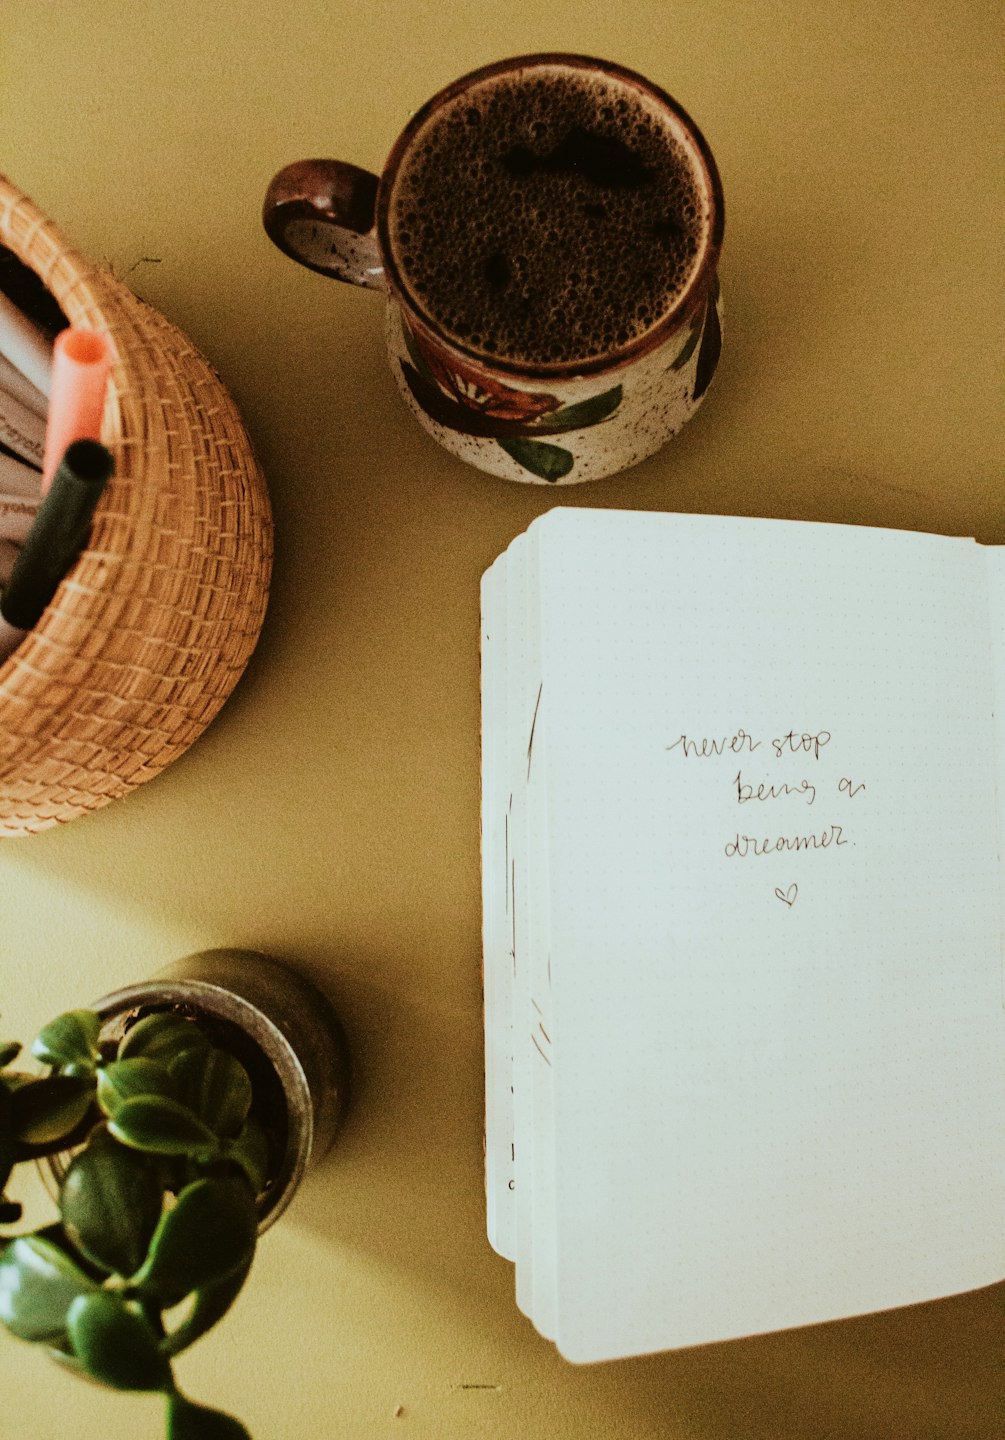 never stop
being a
dreamer.
♡